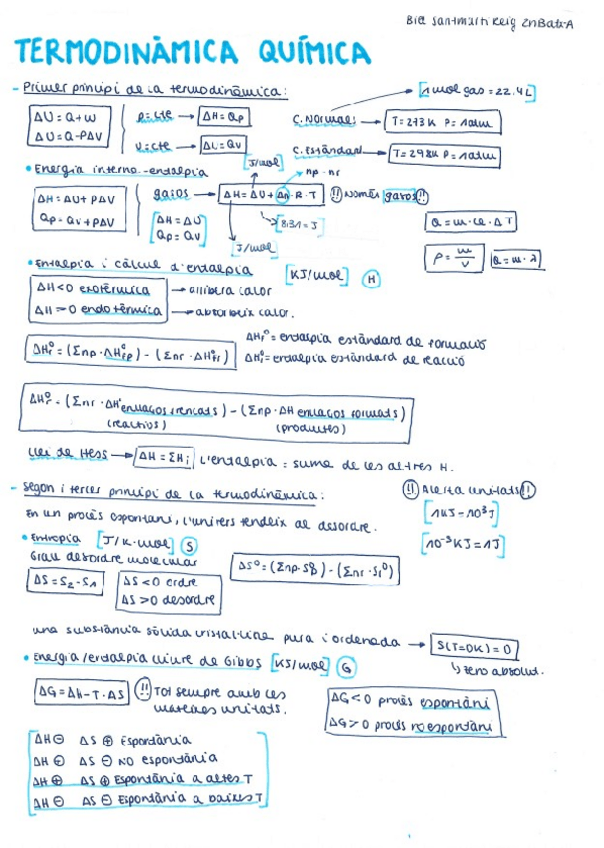 Bia Santmartí Reig 2nBatx A
TERMODINÀMICA QUÍMICA
- Primer principi de la termodinàmica:
[1 mol gas = 22.4L]
ΔU = Q + W
ΔU = Q - PΔV
p = cte → ΔH = Qp
V = cte → ΔU = Qv
C. Normals → T = 273K P = 1atm
C. Estàndard → T = 298K P = 1atm
• Energia interna - entalpia
[J/mol]
np - nr
ΔH = ΔU + PΔV
Qp = Qv + PΔV
gasos → ΔH = ΔU + Δn · R · T (!!) Només gasos (!!)
[ΔH = ΔU
Qp = Qv]
[8'31 = J]
[J/mol]
Q = m · ce · ΔT
ρ = m/V
Q = m · λ
• Entalpia i càlcul d'entalpia [KJ/mol] (H)
ΔH < 0 exotèrmica → allibera calor
ΔH > 0 endotèrmica → absorbeix calor.
ΔHr° = (Σnp · ΔHfp°) - (Σnr · ΔHfr°)
ΔHf° = entalpia estàndard de formació
ΔHr° = entalpia estàndard de reacció
ΔHr° = (Σnr · ΔH enllaços trencats) - (Σnp · ΔH enllaços formats)
(reactius) (productes)
Llei de Hess → ΔH = ΣHi L'entalpia = suma de les altres H.
- Segon i tercer principi de la termodinàmica:
(!!) Alerta unitats (!!)
En un procés espontani, l'univers tendeix al desordre.
[1KJ = 10³J]
[10⁻³KJ = 1J]
• Entropia [J/K·mol] (S)
Grau desordre molecular
ΔS = S2 - S1
ΔS < 0 ordre
ΔS > 0 desordre
ΔS° = (Σnp · Sp°) - (Σnr · Sr°)
una substància sòlida cristal·lina pura i ordenada → S(T=0K) = 0
↳ zero absolut.
• Energia/entalpia lliure de Gibbs [KJ/mol] (G)
ΔG = ΔH - T · ΔS (!!) Tot sempre amb les
mateixes unitats.
ΔG < 0 procés espontàni
ΔG > 0 procés no espontàni
ΔH ⊖ ΔS ⊕ Espontània
ΔH ⊕ ΔS ⊖ NO espontània
ΔH ⊕ ΔS ⊕ Espontània a altes T
ΔH ⊖ ΔS ⊖ Espontània a baixes T